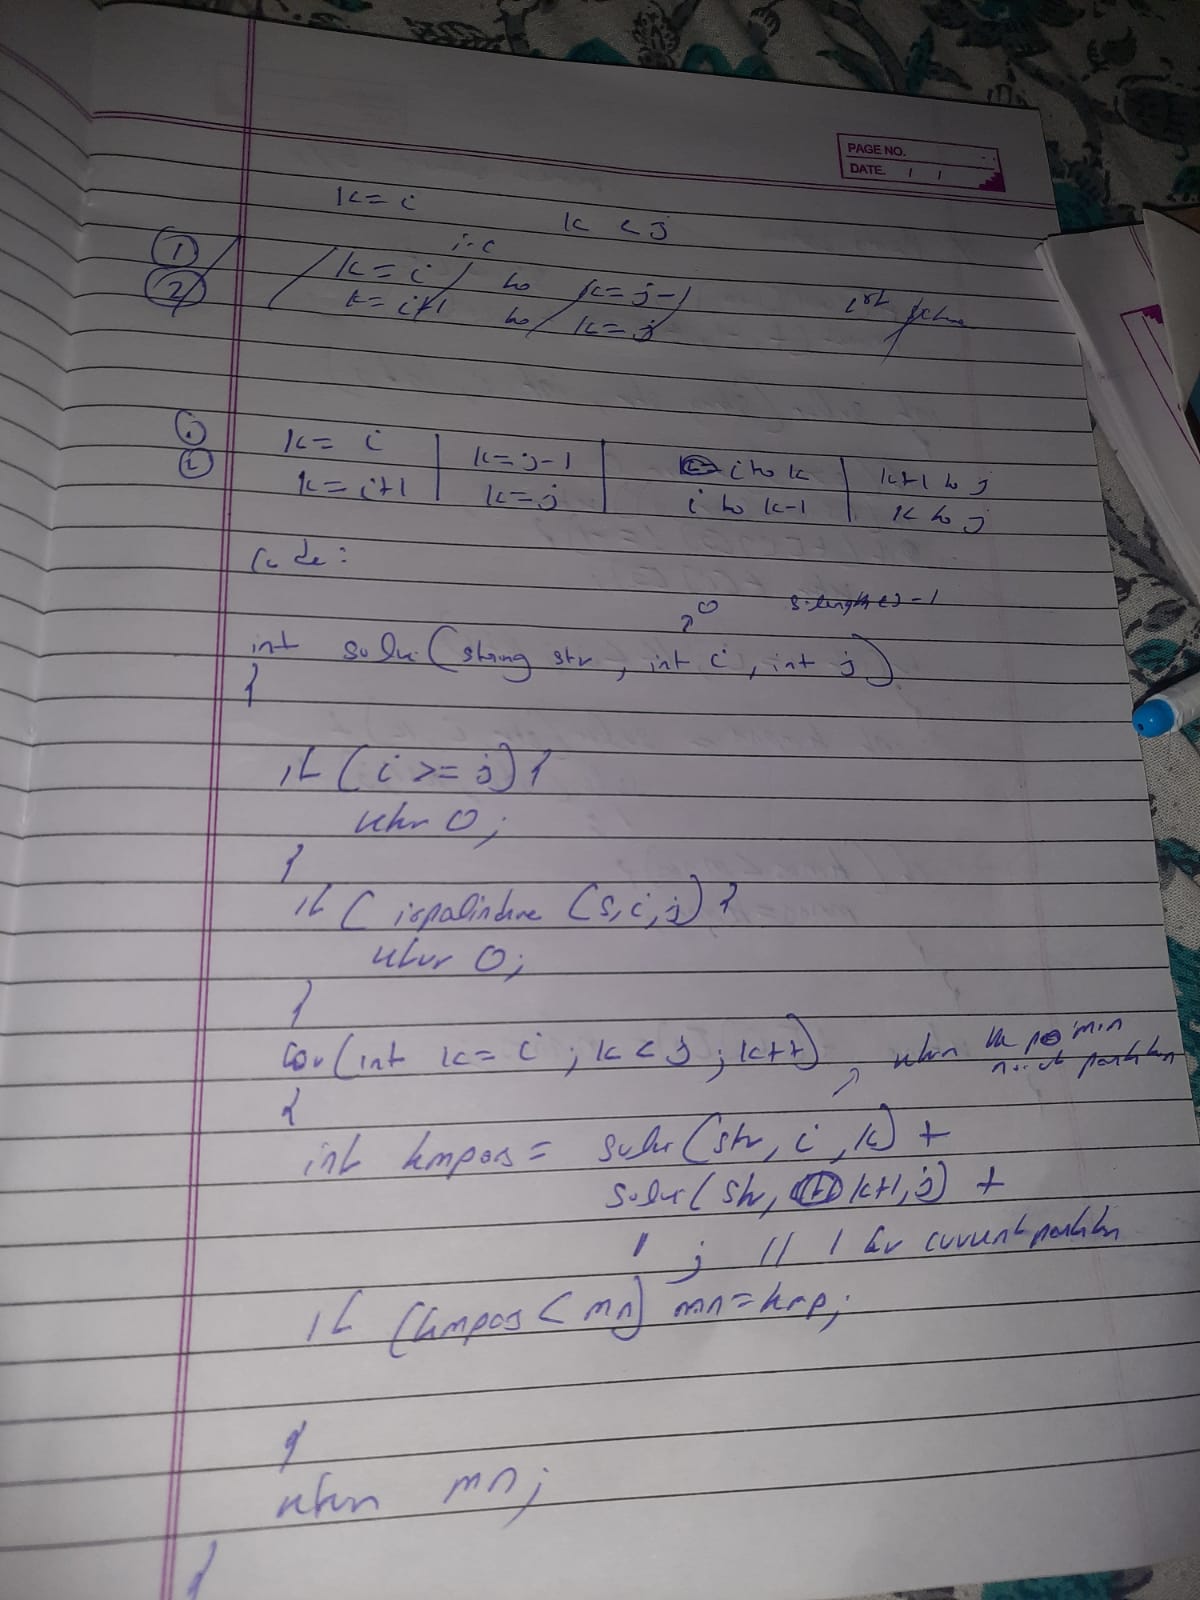 PAGE NO.
DATE. / /
k = i k < j
① k = i to k = j-1
② k = i+1 to k = j
① k = i k = j-1 i to k k+1 to j
② k = i+1 k = j i to k-1 k to j
Code:
0 s.length()-1
int solve(string str, int i, int j)
{
if (i >= j) {
return 0;
}
if (ispalindrome (s, i, j) {
return 0;
}
for (int k = i ; k < j ; k++)
return the min
partition
{
int tempans = solve (str, i, k) +
solve (str, k+1, j) +
1 ; // 1 for current partition
if (tempans < mn) mn = tmp;
}
return mn;
}